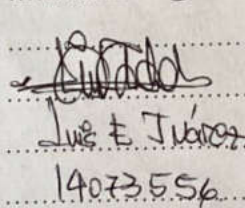 Luis E Juárez
14073556